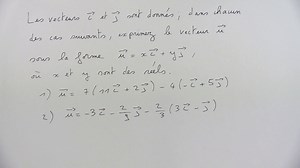 Les vecteurs i⃗ et j⃗ sont donnés, dans chacun
des cas suivants, exprimez le vecteur u⃗
sous la forme u⃗ = x i⃗ + y j⃗,
où x et y sont des réels.
1) u⃗ = 7 (11 i⃗ + 2 j⃗) - 4 (- i⃗ + 5 j⃗)
2) u⃗ = -3 i⃗ - 2/3 j⃗ - 2/3 (3 i⃗ - j⃗)